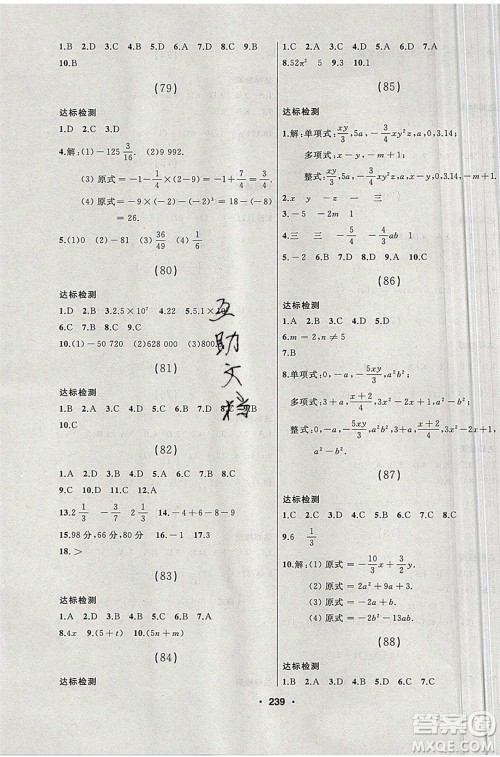 1.B 2.D 3.C 4.D 5.C 6.A 7.D 8.D 9.D
10.B
(79)
达标检测
1.D 2.C 3.D
4.解:(1)-125 3/16. (2)9 992.
(3)原式=-1-1/4×(2-9)=-1+7/4=3/4.
(4)原式=-9×(-2)-(-8)=18+8
=26.
5.(1)(0) (2)-81 (3)36/49 (4)9/5
(80)
达标检测
1.D 2.B 3.2.5×10⁷ 4.22 5.5.1×
6.D 7.B 8.C 9.C
10.(1)-50 720 (2)628000 (3)800.
(81)
达标检测
1.B 2.A 3.D 4.D 5.D 6.C 7.C 8.C 9.B
10.C
(82)
1.A 2.B 3.C 4.D 5.B 6.B 7.B 8.C
9.C 10.D 11.D 12.A
13.2 1/3 -3/7 -1/3 14.-4-6+8-9
15.98分,66分,80分 16.-1 17.3
18.>
(83)
达标检测
1.A 2.D 3.A 4.D 5.B 6.B 7.A
8.4x 9.(5+t) 10.(5n+m)
(84)
达标检测
1.C 2.A 3.A 4.D 5.C 6.B 7.D
8.52π² 5 9.3 10.1
(85)
达标检测
1.解:单项式:xy/3,5a,-3/4xy²z,a,0,3.14,
多项式:x-y,-m+1;
整式:xy/3,5a,-3/4xy²z,x-y,a,0,3.14,-m+1.
2.x y - 三 三
3.-5 -2m 1
4.三 三 -5/4 -4/3ab 1
5.-2 6.C 7.C 8.B 9.B
(86)
达标检测
1.A 2.B 3.D 4.D 5.D
6.m=2,n≠5
7.B
8.单项式:0,-a,-5xy/3,a²b²,
多项式:3+a,x+2/4,
整式:0,-a,-5xy/3,a²b²,3+a,x+2/4.
(87)
达标检测
1.C 2.A 3.B 4.D 5.D 6.C 7.D 8.B
9.6 1/3
10.解:(1)原式=-10/3x+3/4x².
(2)原式=2a²+a+9.
(3)原式=-2a²b-ab².
(4)原式=-2-13ab.
(88)
达标检测
1.B 2.A 3.D 4.C 5.C 6.D 7.A
互助文档
• 239 •
答案圈
MXQE.COM